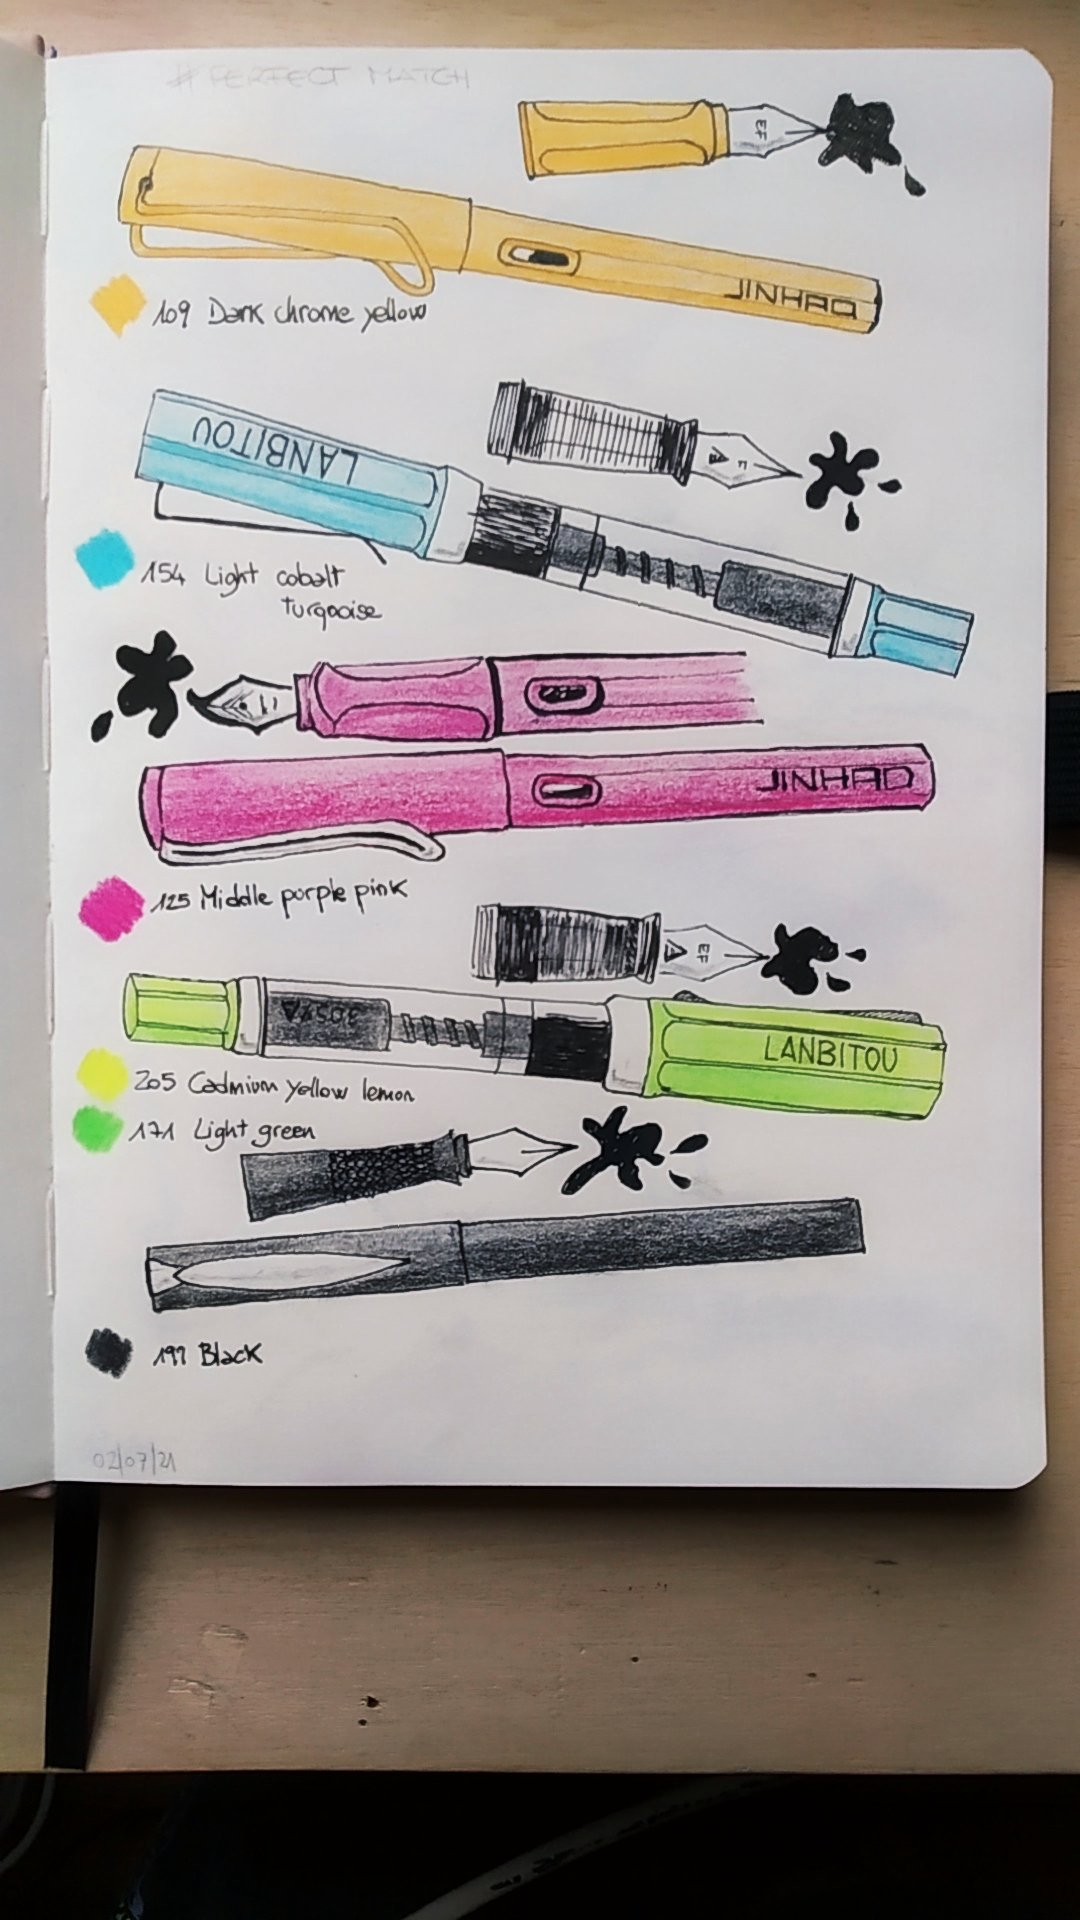 #PERFECT MATCH
EF
JINHAO
109 Dark chrome yellow
LANBITOU
F
154 Light cobalt
turqoise
JINHAO
125 Middle purple pink
EF
3059A
LANBITOU
205 Cadmium yellow lemon
171 Light green
199 Black
02/07/21